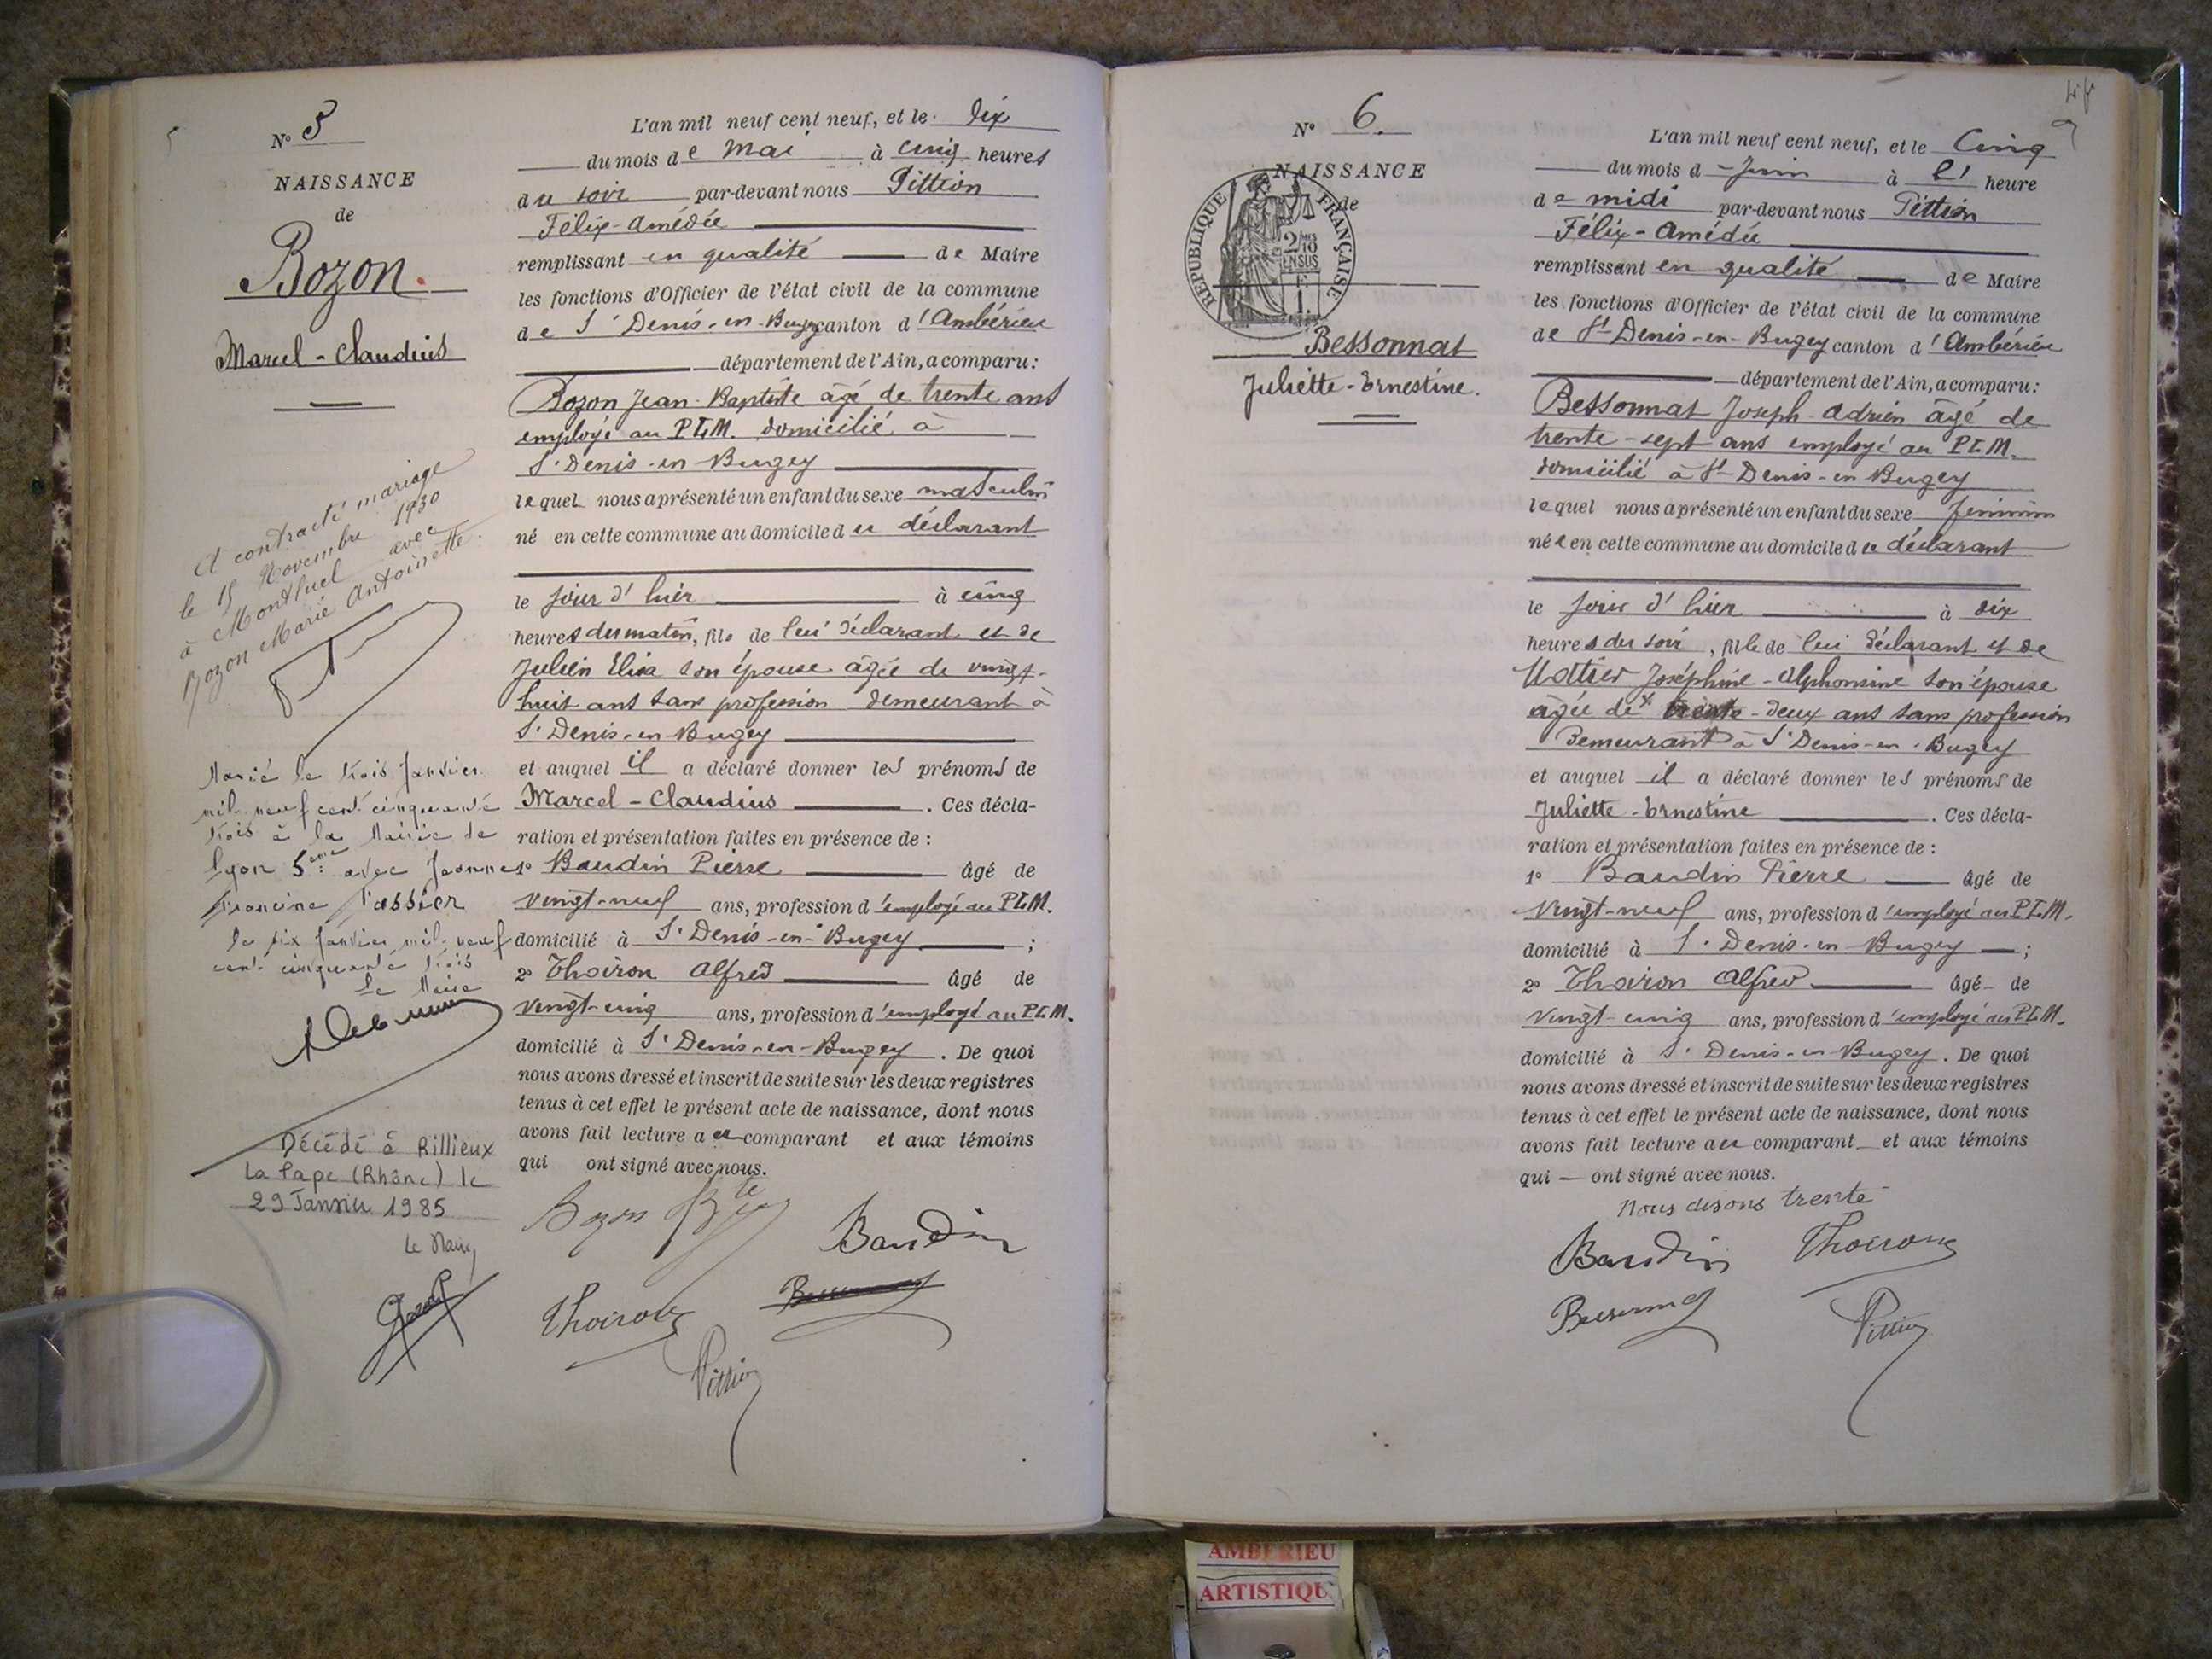 N° 5
NAISSANCE
de
Bozon.
Marcel-Claudius
A contracté mariage
le 15 Novembre 1930
à Montluel avec
Bozon Marie Antoinette.
Marié le trois Janvier
mil neuf cent cinquante
trois à la Mairie de
Lyon 5ème avec Jeanne
Francine Tassier
le dix Janvier mil neuf
cent cinquante trois
Le Maire
Décédé à Rillieux
La Pape (Rhône) le
29 Janvier 1985
Le Maire
L'an mil neuf cent neuf, et le dix
du mois de Mai à cinq heures
du soir par-devant nous Pittion
Félix-Amédée
remplissant en qualité de Maire
les fonctions d'Officier de l'état civil de la commune
de St Denis-en-Bugey canton d'Ambérieu
département de l'Ain, a comparu:
Bozon Jean-Baptiste âgé de trente ans
employé au PLM. domicilié à
St Denis-en-Bugey
lequel nous a présenté un enfant du sexe masculin
né en cette commune au domicile du déclarant
le jour d'hier à cinq
heures du matin, fils de lui déclarant et de
Julien Elisa son épouse âgée de vingt-
huit ans sans profession demeurant à
St Denis-en-Bugey
et auquel il a déclaré donner les prénoms de
Marcel-Claudius. Ces décla-
ration et présentation faites en présence de :
1° Baudin Pierre âgé de
vingt-neuf ans, profession d'employé au PLM.
domicilié à St Denis-en-Bugey ;
2° Thoiron Alfred âgé de
vingt-cinq ans, profession d'employé au PLM.
domicilié à St Denis-en-Bugey. De quoi
nous avons dressé et inscrit de suite sur les deux registres
tenus à cet effet le présent acte de naissance, dont nous
avons fait lecture au comparant et aux témoins
qui ont signé avec nous.
Bozon Bte
Baudin
Thoiron
Pittion
N° 6.
NAISSANCE
de
REPUBLIQUE FRANÇAISE
2/10
EN SUS
F
1.
Bessonnat
Juliette-Ernestine.
L'an mil neuf cent neuf, et le Cinq
du mois de Juin à l' heure
de midi par-devant nous Pittion
Félix-Amédée
remplissant en qualité de Maire
les fonctions d'Officier de l'état civil de la commune
de St-Denis-en-Bugey canton d'Ambérieu
département de l'Ain, a comparu:
Bessonnat Joseph-Adrien âgé de
trente-sept ans employé au PLM.
domicilié à St-Denis-en-Bugey
lequel nous a présenté un enfant du sexe féminin
née en cette commune au domicile du déclarant
le jour d'hier à dix
heures du soir, fille de lui déclarant et de
Joséphine-Alphonsine son épouse
âgée de trente-deux ans sans profession
demeurant à St Denis-en-Bugey
et auquel il a déclaré donner les prénoms de
Juliette-Ernestine. Ces décla-
ration et présentation faites en présence de :
1° Baudin Pierre âgé de
vingt-neuf ans, profession d'employé au PLM.
domicilié à St Denis-en-Bugey ;
2° Thoiron Alfred âgé de
vingt-cinq ans, profession d'employé au PLM.
domicilié à St Denis-en-Bugey. De quoi
nous avons dressé et inscrit de suite sur les deux registres
tenus à cet effet le présent acte de naissance, dont nous
avons fait lecture au comparant et aux témoins
qui ont signé avec nous.
Nous disons trente
Baudin Thoiron
Pittion
AMBERIEU
ARTISTIQU